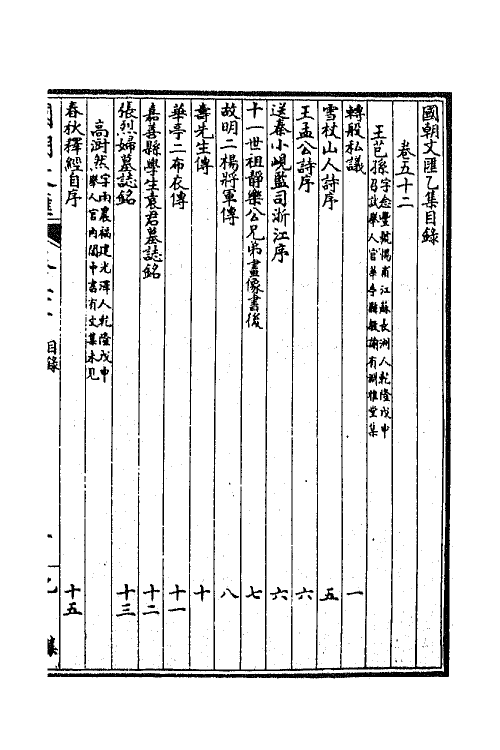 國朝文匯乙集目錄
卷五十二
王芑孫 字念豐號惕甫江蘇長洲人乾隆戊申
召試舉人官華亭縣教諭有淵雅堂集
轉般私議 一
雪杖山人詩序 五
王孟公詩序 六
送秦小峴監司浙江序 六
十一世祖靜樂公兄弟畫像書後 七
故明二楊將軍傳 八
壽先生傳 十
華亭二布衣傳 十一
嘉善縣學生袁君墓誌銘 十二
張烈婦墓誌銘 十三
高澍然 字雨農福建光澤人乾隆戊申
舉人官內閣中書有文集未見
春秋釋經自序 十五
目錄